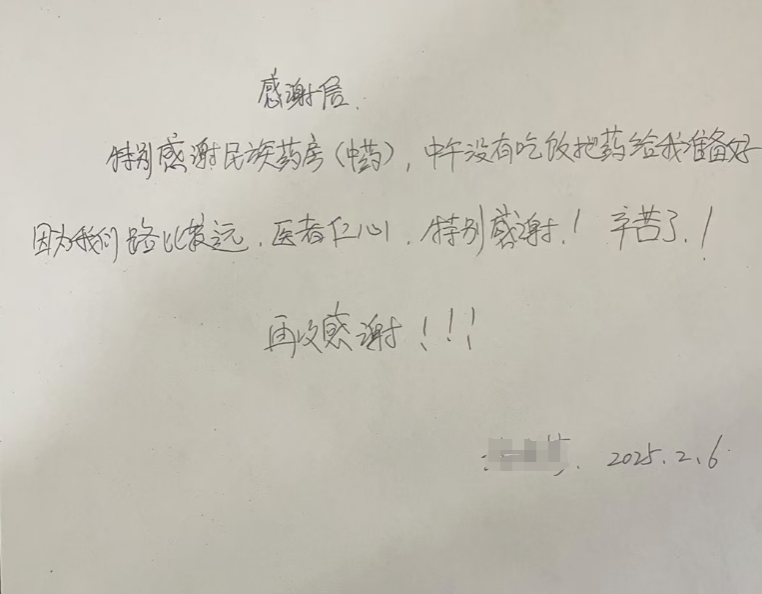 感谢信.
特别感谢民族药房(中药),中午没有吃饭把药给我准备好
因为我们路比较远.医者仁心,特别感谢!辛苦了!
再次感谢!!!
2025.2.6